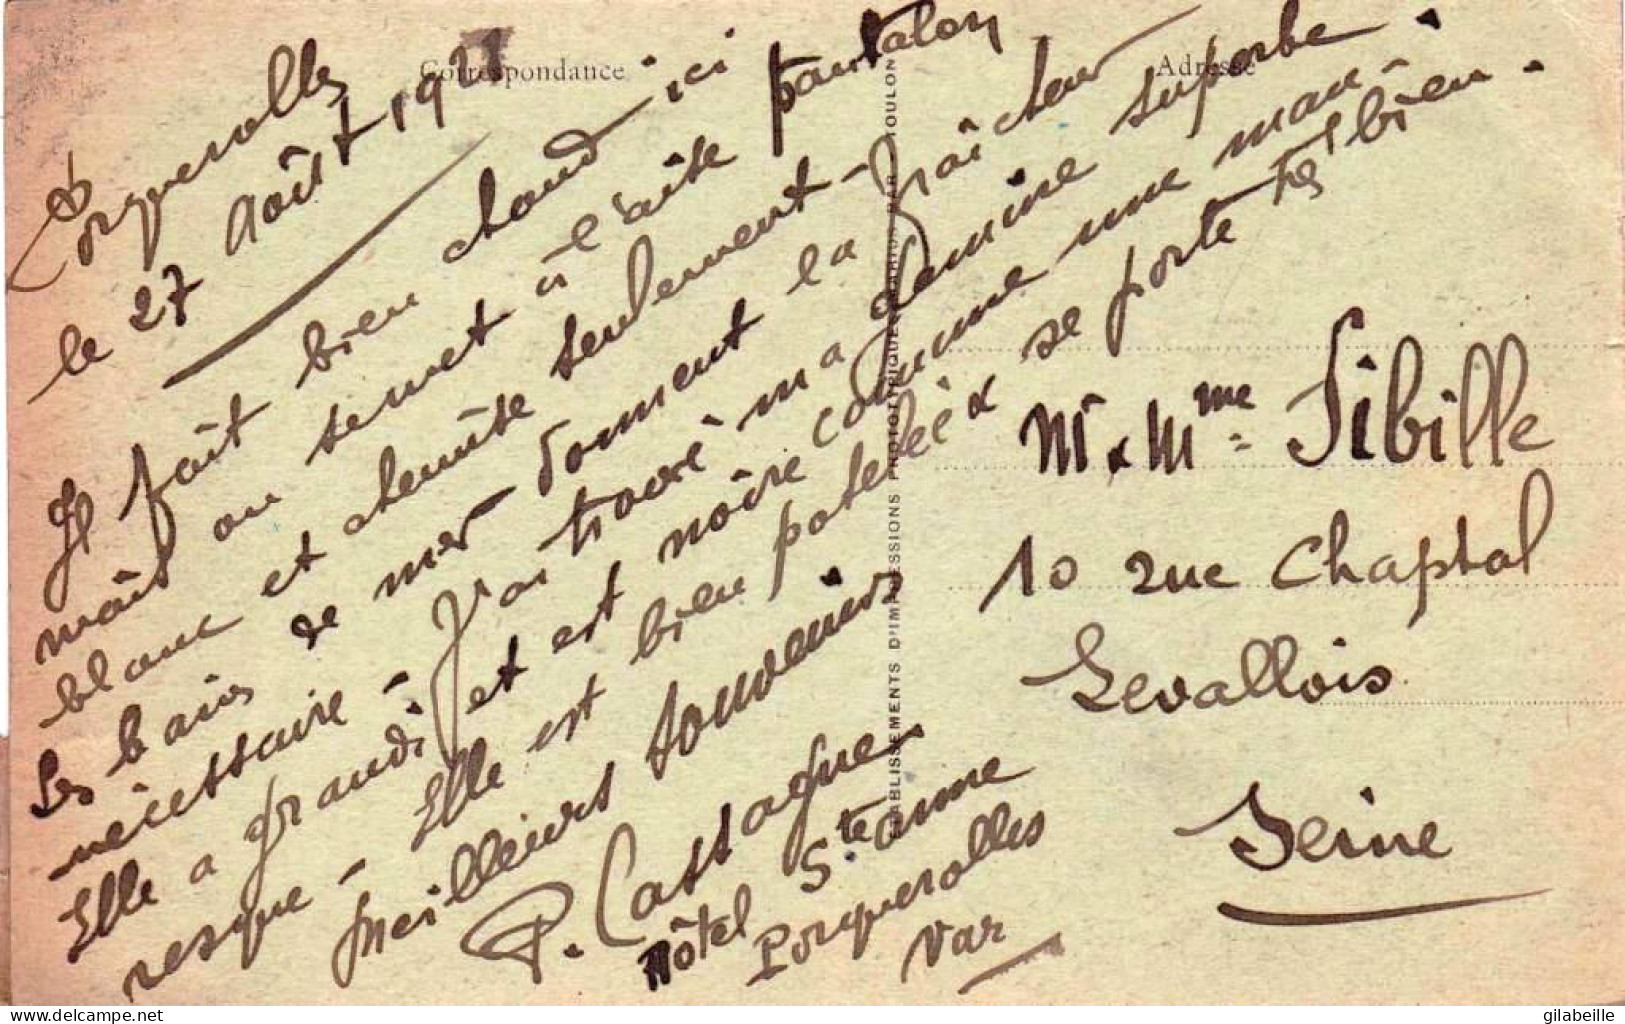 Correspondance
Adresse
Porquerolles
le 27 Août 1921
Il fait bien chaud ici
mais on se met à l'aise pantalon
blanc et chemise seulement -
Les bains de mer donnent la fraîcheur
nécessaire - J'ai trouvé ma gamine superbe.
Elle a grandi et est noire comme une mau-
resque - Elle est bien potelée & se porte très bien.
Meilleurs souvenirs
P. Castagne
Hôtel Ste anne
Porquerolles
Var
Mr & Mme Sibille
10 rue Chaptal
Levallois
Seine
ETABLISSEMENTS D'IMPRESSIONS PHOTOTYPIQUES TOULON
delcampe.net
gilabeille